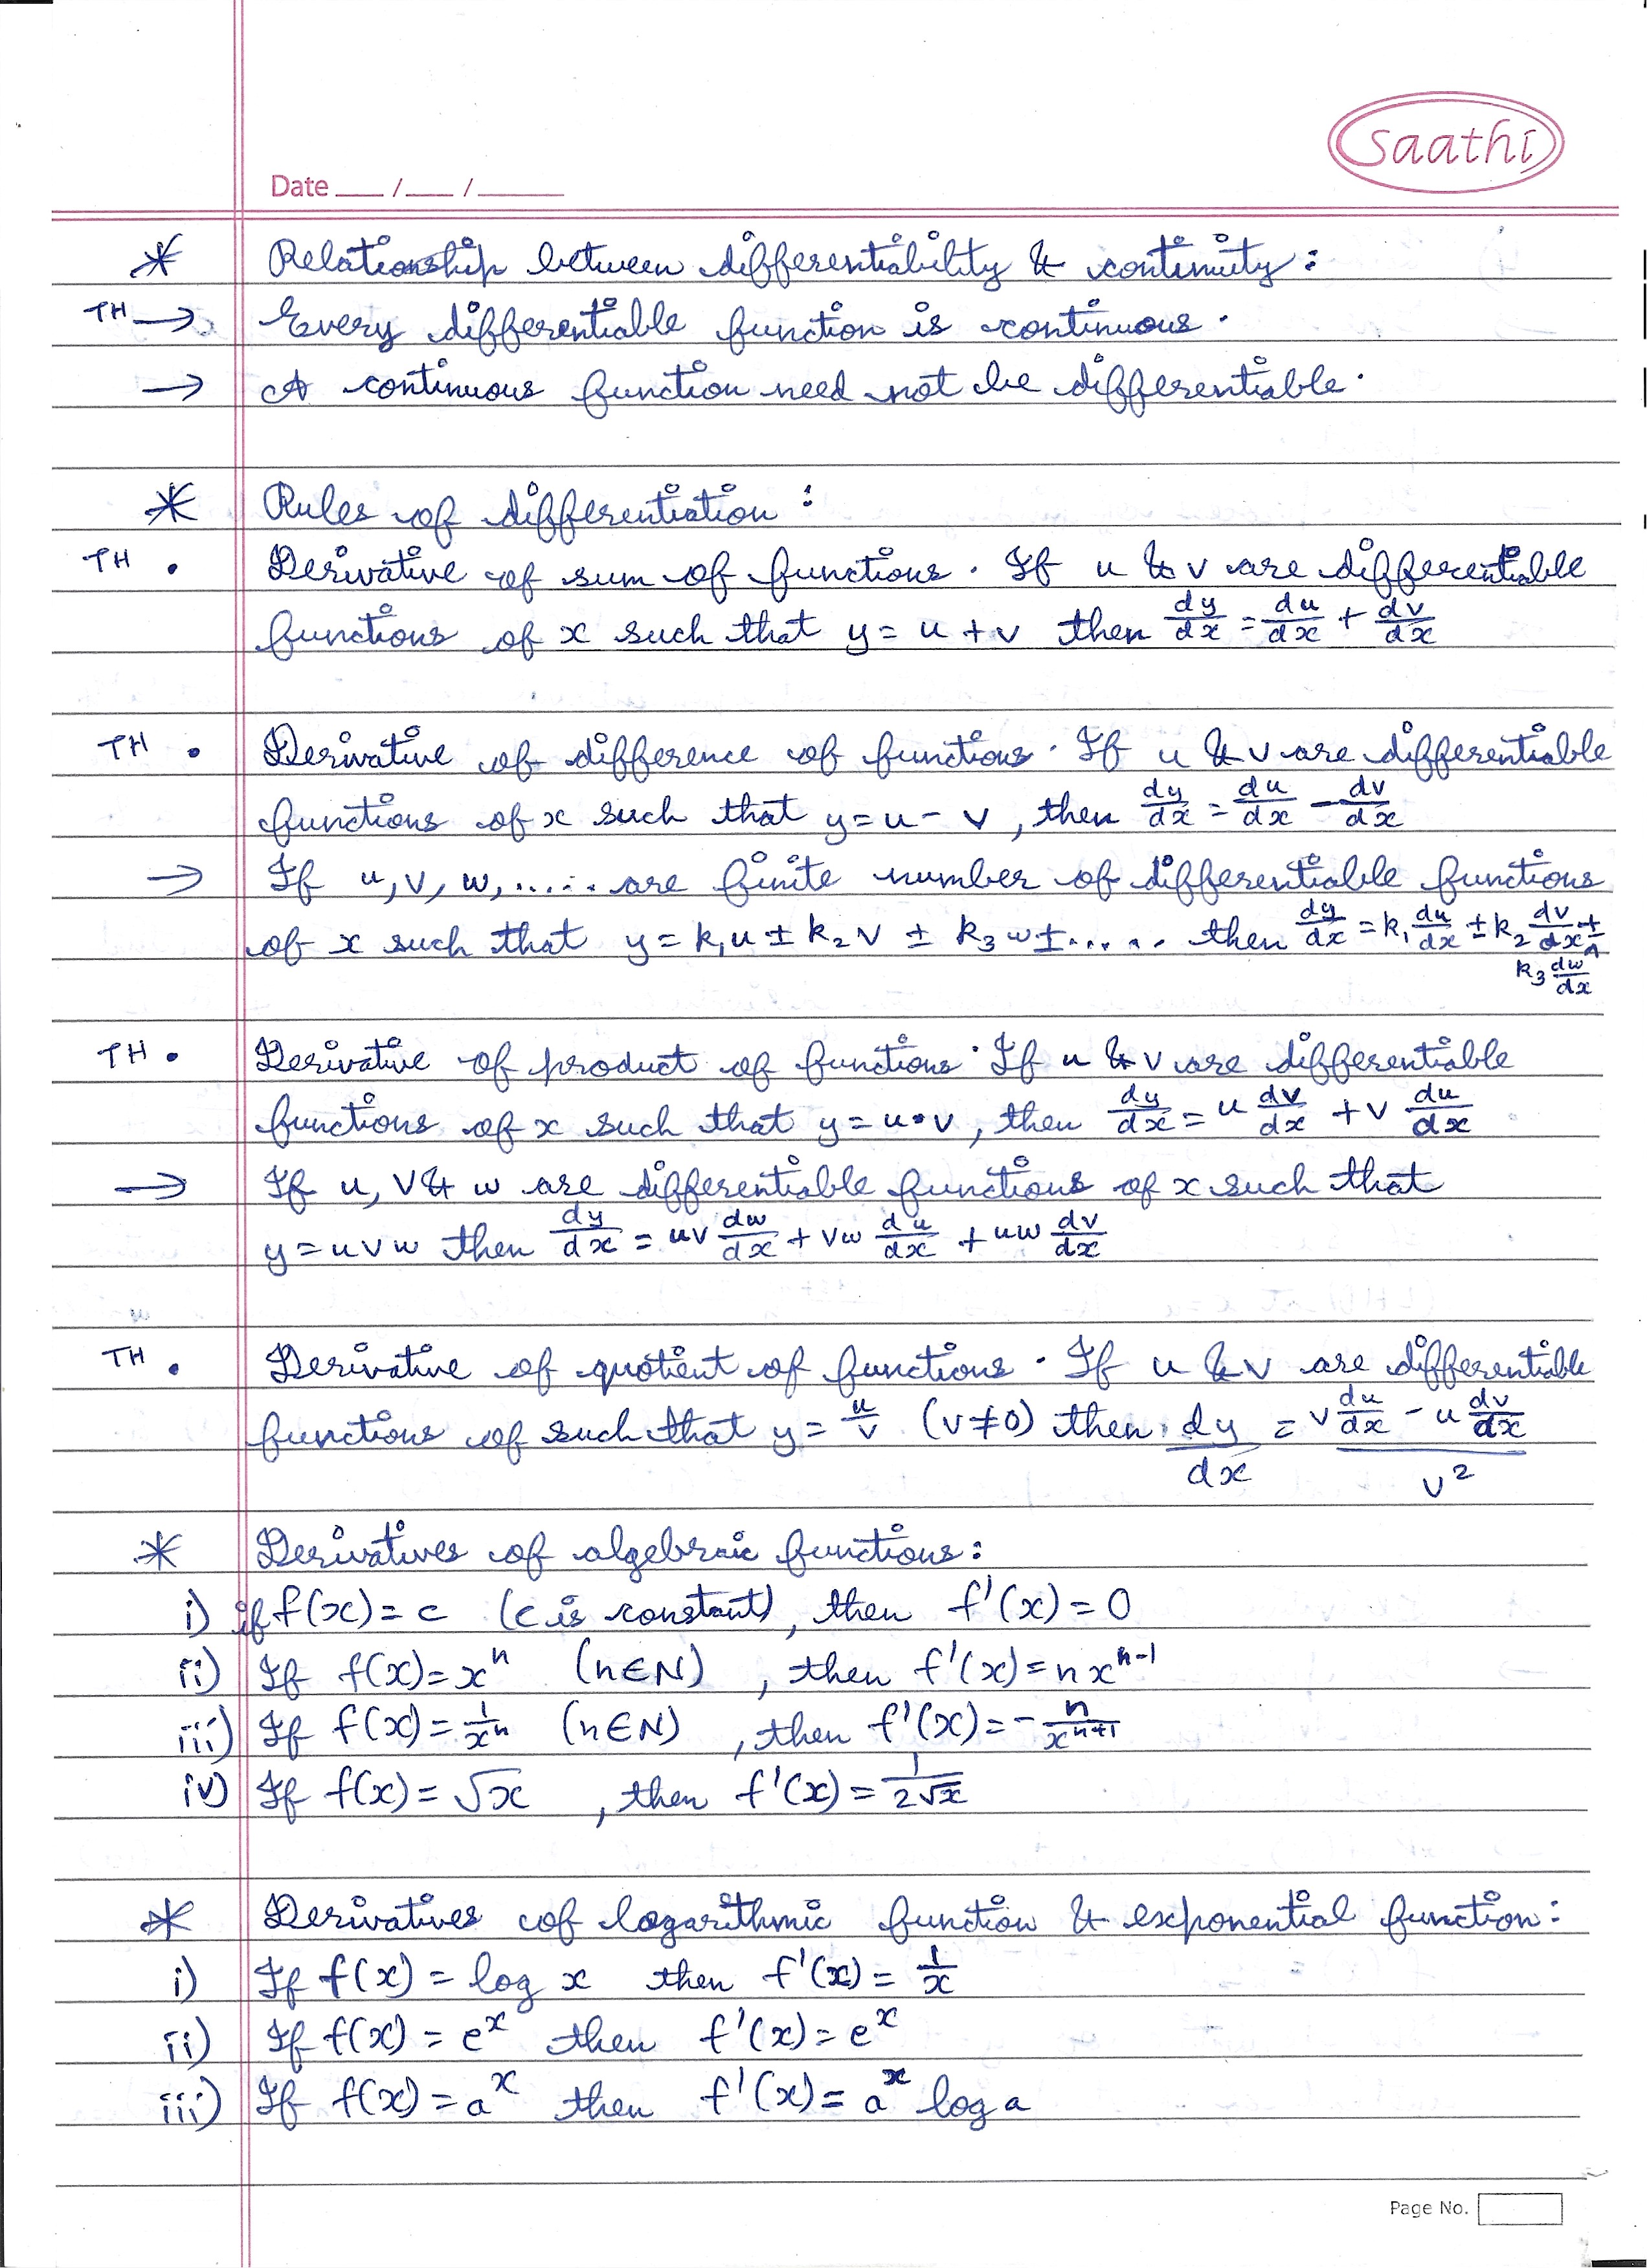 Saathi
Date ___ / ___ / ______
* Relationship between differentiability & continuity :
TH → Every differentiable function is continuous .
→ A continuous function need not be differentiable .
* Rules of differentiation :
TH . Derivative of sum of functions . If u & v are differentiable
functions of x such that y = u + v then dy/dx = du/dx + dv/dx
TH . Derivative of difference of functions . If u & v are differentiable
functions of x such that y = u - v , then dy/dx = du/dx - dv/dx
→ If u, v, w, ..... are finite number of differentiable functions
of x such that y = k₁u ± k₂v ± k₃w ± ..... then dy/dx = k₁ du/dx ± k₂ dv/dx ±
k₃ dw/dx
TH . Derivative of product of functions . If u & v are differentiable
functions of x such that y = u • v , then dy/dx = u dv/dx + v du/dx
→ If u, v & w are differentiable functions of x such that
y = u v w then dy/dx = uv dw/dx + vw du/dx + uw dv/dx
TH . Derivative of quotient of functions . If u & v are differentiable
functions of such that y = u/v (v ≠ 0) then dy/dx = (v du/dx - u dv/dx) / v²
* Derivatives of algebraic functions :
i) if f(x) = c (c is constant) , then f'(x) = 0
ii) If f(x) = xⁿ (n ∈ N) , then f'(x) = n xⁿ⁻¹
iii) If f(x) = 1/xⁿ (n ∈ N) , then f'(x) = - n/xⁿ⁺¹
iv) If f(x) = √x , then f'(x) = 1/2√x
* Derivatives of logarithmic function & exponential function :
i) If f(x) = log x then f'(x) = 1/x
ii) If f(x) = eˣ then f'(x) = eˣ
iii) If f(x) = aˣ then f'(x) = aˣ log a
Page No.